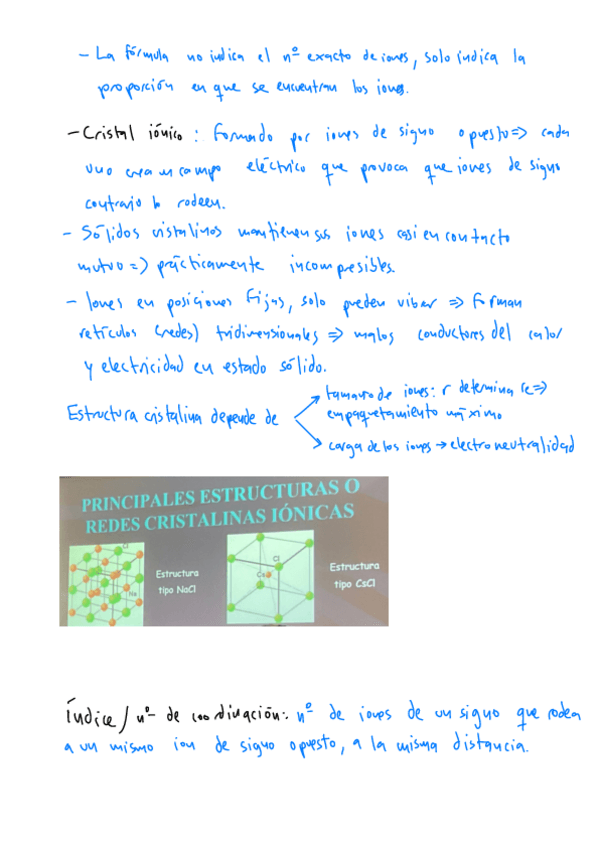 - La fórmula no indica el nº exacto de iones, solo indica la
proporción en que se encuentran los iones.
- Cristal iónico: Formado por iones de signo opuesto => cada
uno crea un campo eléctrico que provoca que iones de signo
contrario lo rodeen.
- Sólidos cristalinos mantienen sus iones casi en contacto
mutuo => prácticamente incompresibles.
- Iones en posiciones fijas, solo pueden vibrar => Forman
retículos (redes) tridimensionales => malos conductores del calor
y electricidad en estado sólido.
Estructura cristalina depende de
tamaño de iones: r determina re =>
empaquetamiento máximo
carga de los iones → electroneutralidad
PRINCIPALES ESTRUCTURAS O
REDES CRISTALINAS IÓNICAS
Cl
Na
Estructura
tipo NaCl
Cl
Cs
Estructura
tipo CsCl
Índice / nº de coordinación: nº de iones de un signo que rodea
a un mismo ion de signo opuesto, a la misma distancia.